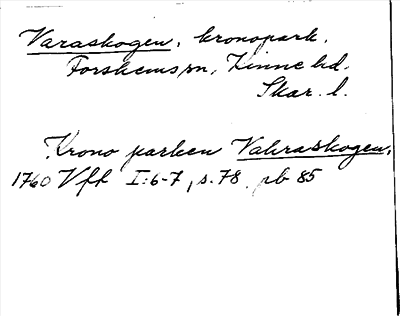 Varaskogen, kronopark,
Forshems sn, Kinne hd.
Skar. l.
Krono parken Vahraskogen,
1760 Vft I:6-7, s. 78, pb 85